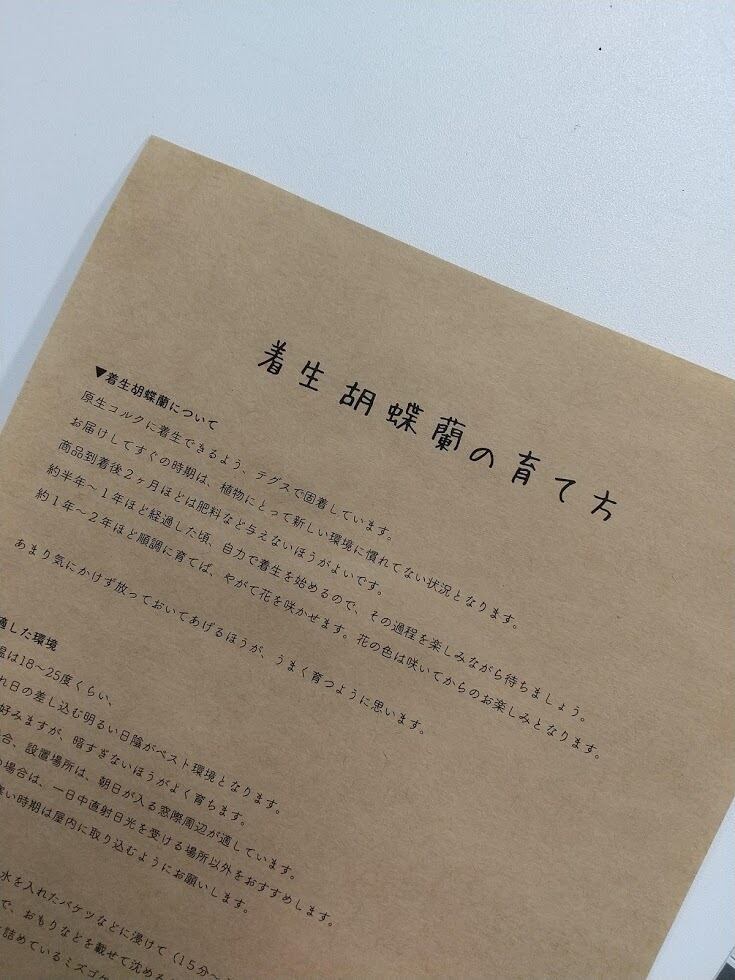 着生胡蝶蘭の育て方
▼着生胡蝶蘭について
原生コルクに着生できるよう、テグスで固着しています。
お届けしてすぐの時期は、植物にとって新しい環境に慣れてない状況となります。
商品到着後2ヶ月ほどは肥料など与えないほうがよいです。
約半年～1年ほど経過した頃、自力で着生を始めるので、その過程を楽しみながら待ちましょう。
約1年～2年ほど順調に育てば、やがて花を咲かせます。花の色は咲いてからのお楽しみとなります。
あまり気にかけず放っておいてあげるほうが、うまく育つように思います。
適した環境
温は18～25度くらい、
れ日の差し込む明るい日陰がベスト環境となります。
好みますが、暗すぎないほうがよく育ちます。
合、設置場所は、朝日が入る窓際周辺が適しています。
の場合は、一日中直射日光を受ける場所以外をおすすめします。
寒い時期は屋内に取り込むようにお願いします。
水を入れたバケツなどに浸けて（15分～
で、おもりなどを載せて沈める
詰めているミズゴケ